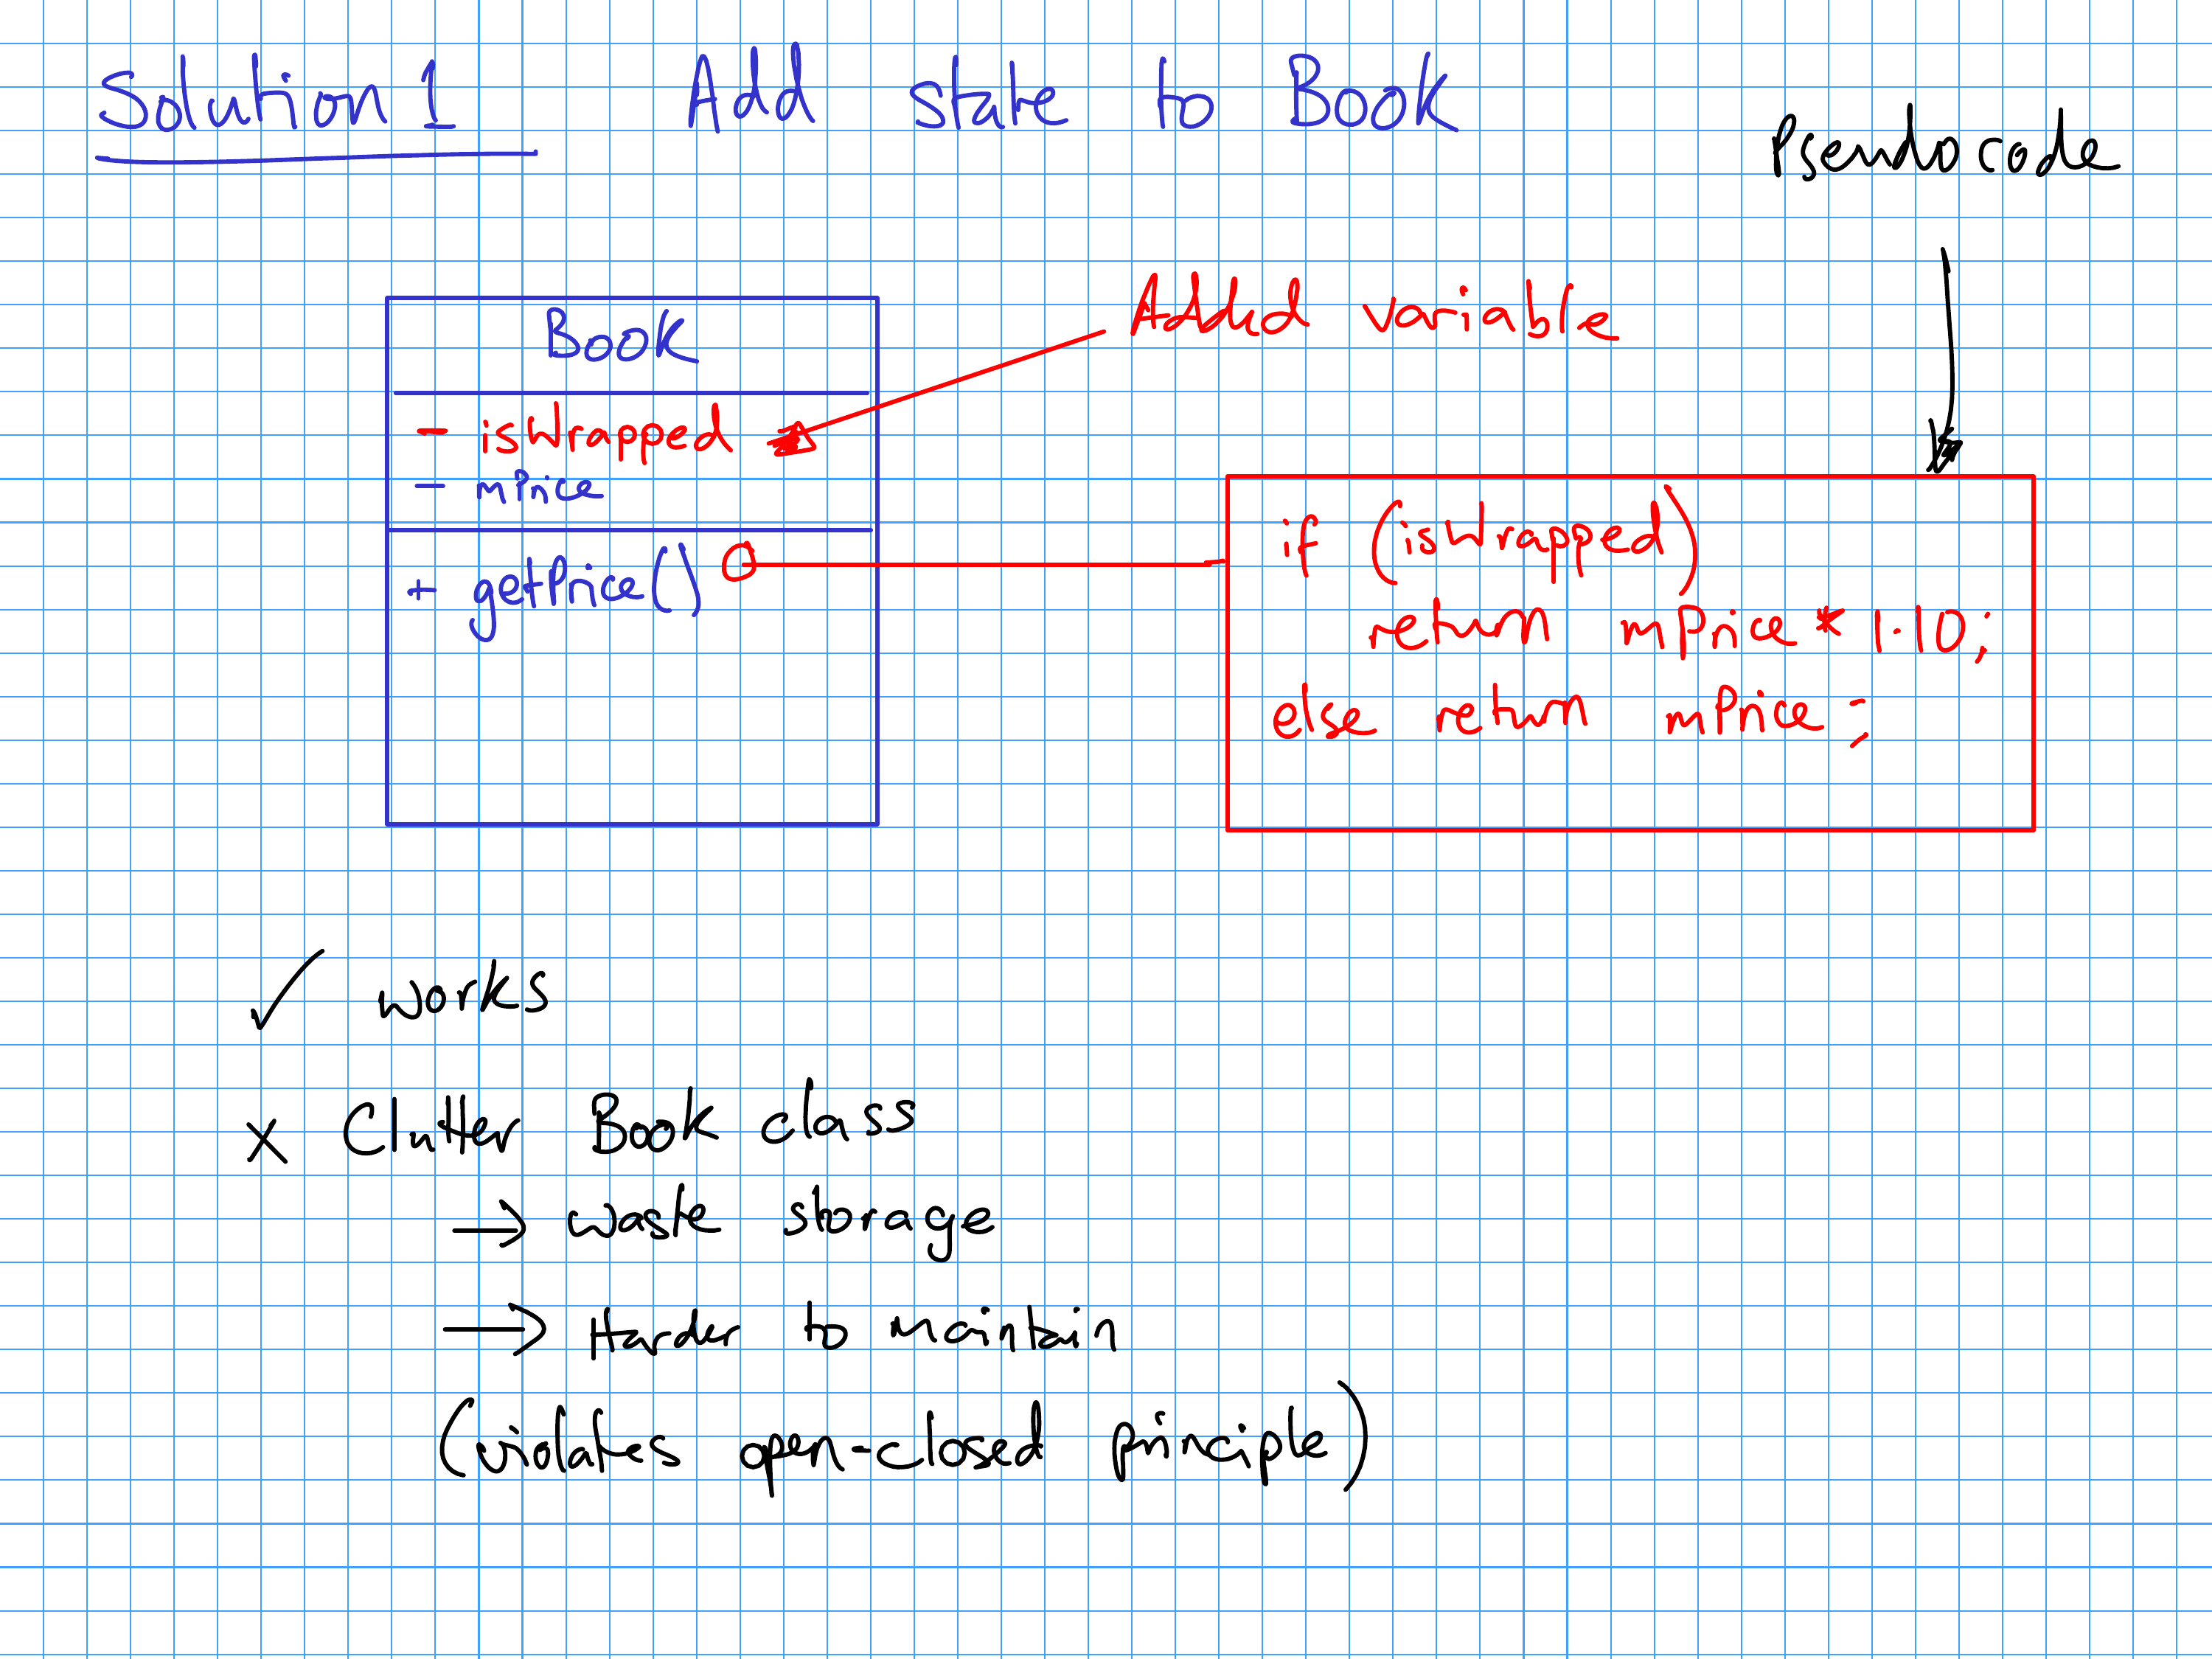 Solution 1 Add state to Book
Pseudocode
Added variable
Book
- isWrapped
- mPrice
+ getPrice()
if (isWrapped)
return mPrice * 1.10;
else return mPrice;
✓ works
x Clutter Book class
→ waste storage
→ Harder to maintain
(violates open-closed principle)